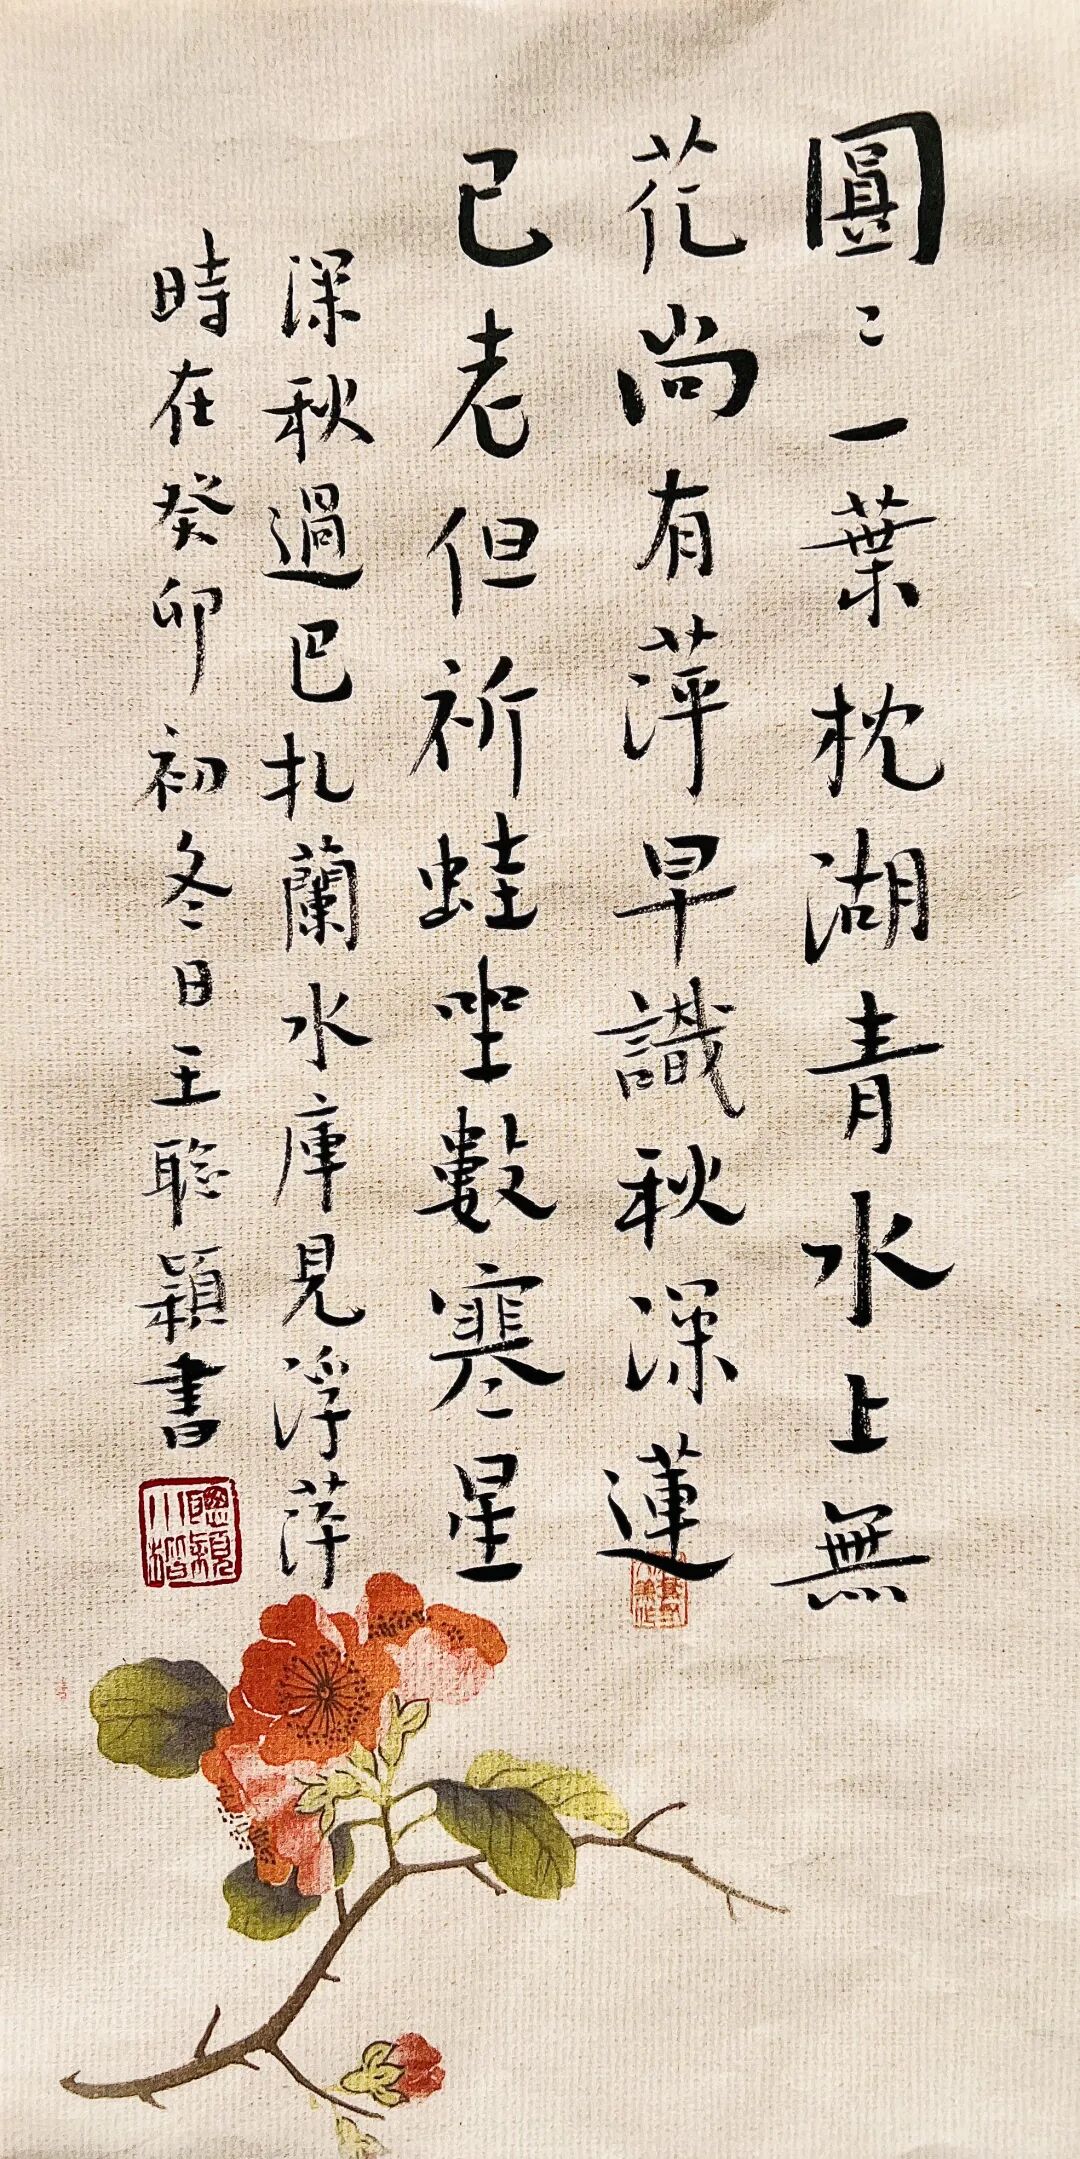 圓〻一葉枕湖青水上無
花尚有萍早識秋深蓮
已老但祈蛙坐數寒星
深秋過巴扎蘭水庫見浮萍
時在癸卯初冬日王聰穎書